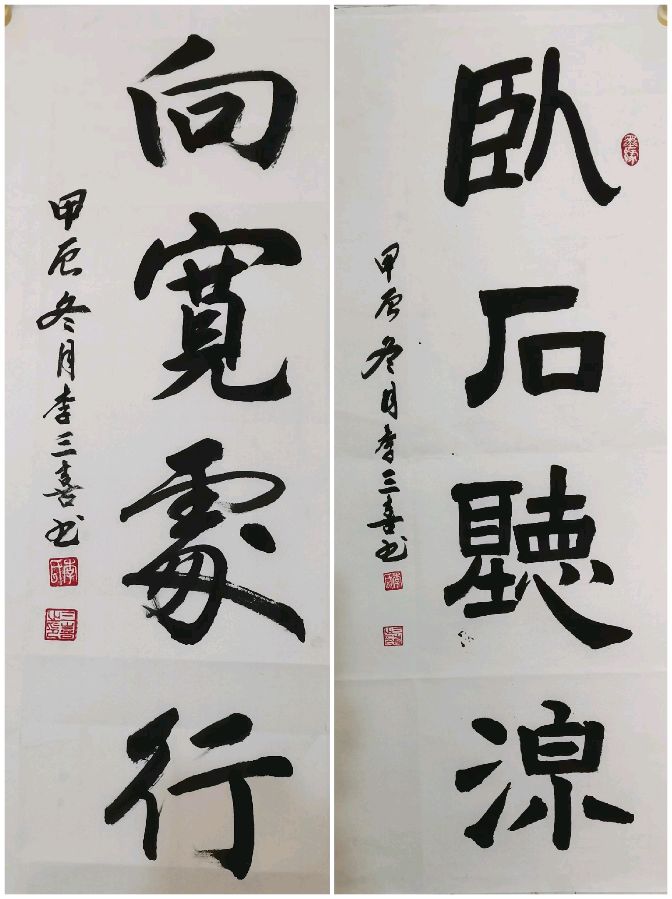 臥石聽涼
甲辰冬月李三喜书
向寬處行
甲辰冬月李三喜书